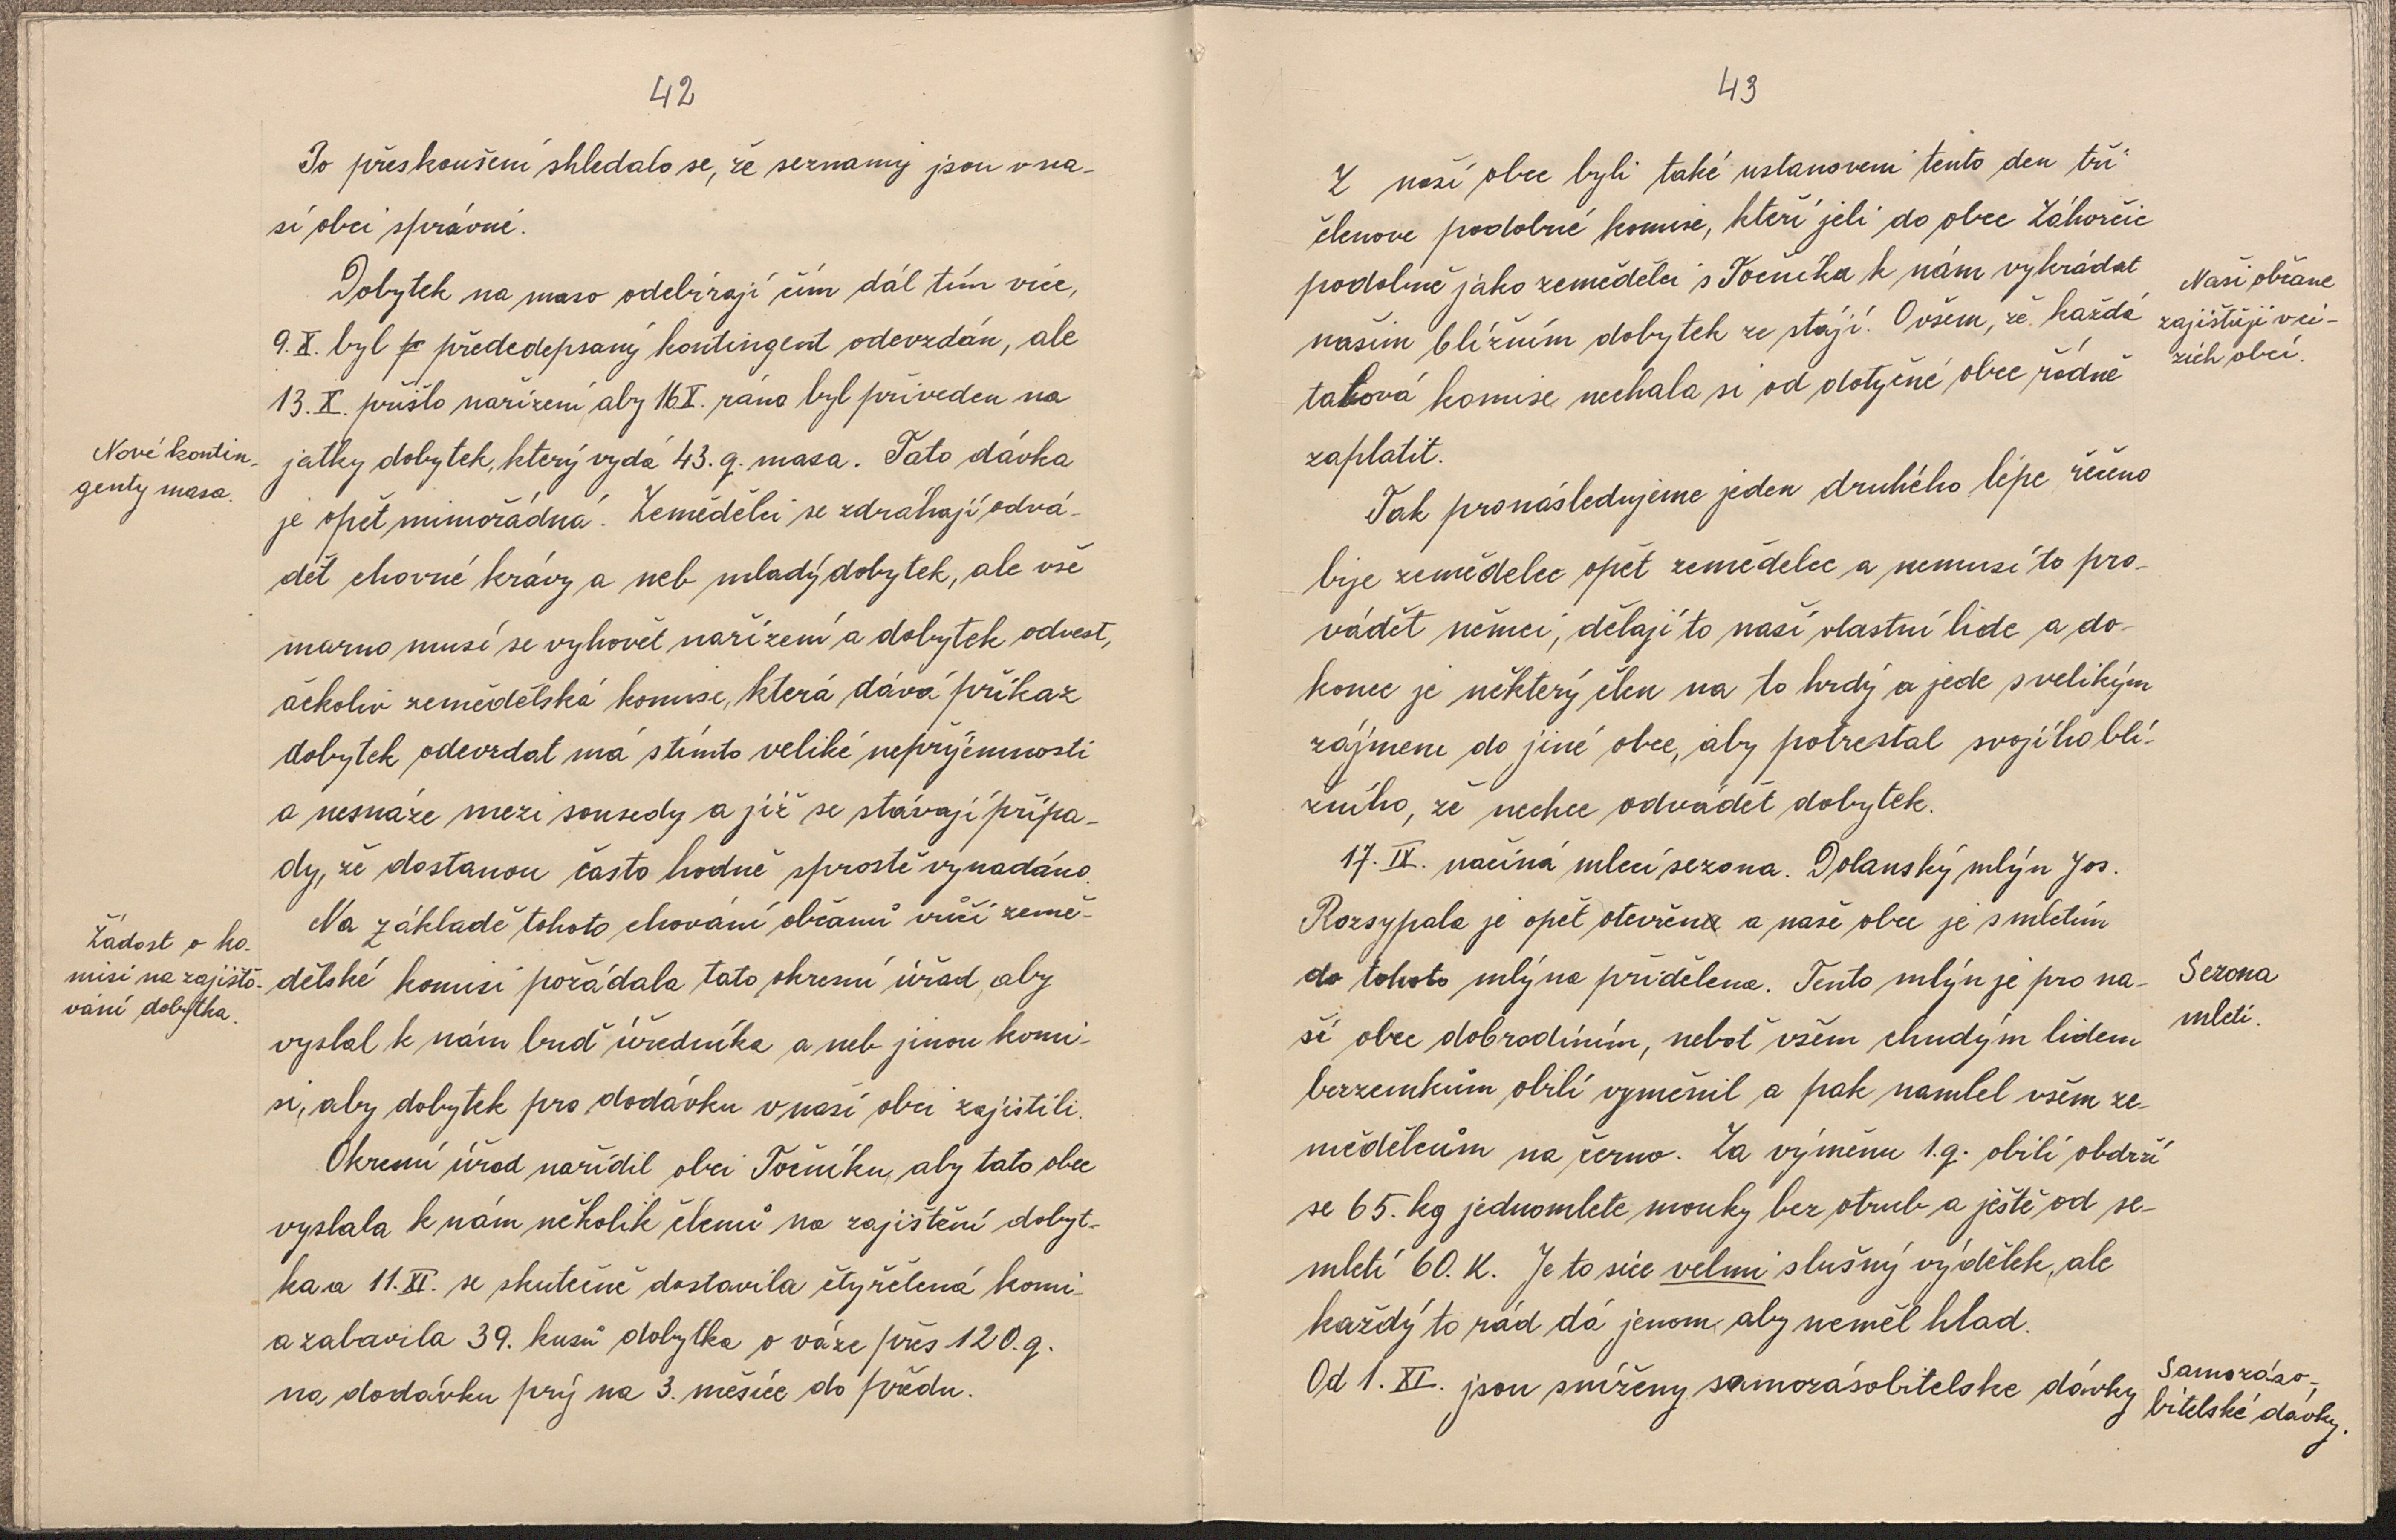 42
Po přeskoušení shledalo se, že seznamy jsou v na-
sí obci správné.
Dobytek na maso odebírají čím dál tím více,
9. X. byl předepsaný kontingent odevzdán, ale
13. X. přišlo nařízení aby 16 X. ráno byl přiveden na
Nové kontin-
genty masa.
jatky dobytek, který vydá 43. q. masa. Tato dávka
je opět mimořádná. Zemědělci se zdráhají odvá-
dět chovné krávy a neb mladý dobytek, ale vše
marno musí se vyhovět nařízení a dobytek odvest,
ačkoliv zemědělská komise, která dává příkaz
dobytek odevzdat má s tímto veliké nepříjemnosti
a nesnáze mezi sousedy a již se stávají přípa-
dy, že dostanou často hodně sprostě vynadáno.
Na základě tohoto chování občanů vůči země-
Žádost o ko-
misi na zajišťo-
vání dobytka.
dělské komisi požádala tato okresní úřad, aby
vyslal k nám buď úředníka a neb jinou komi-
si, aby dobytek pro dodávku v naší obci zajistili.
Okresní úřad nařídil obci Točníku, aby tato obec
vyslala k nám několik členů na zajištění dobyt-
ka a 11. XI. se skutečně dostavila čtyřčlená komi-
a zabavila 39. kusů dobytka o váze přes 120. q.
na dodávku prý na 3. měsíce do předu.
43
Z naší obce byli také ustanoveni tento den tři
členove podobné komise, kteří jeli do obce Záhorčic
podobně jako zemědělci s Točníka k nám vykrádat
našim bližním dobytek ze stájí. Ovšem, že každá
taková komise nechala si od dotyčné obce řádně
zaplatit.
Naši občane
zajišťují v ci-
zích obcí.
Tak pronásledujeme jeden druhého lépe řečeno
bije zemědelec opět zemědelec a nemusí to pro-
vádět němci, dělají to naší vlastní lide a do-
konce je některý člen na to hrdý a jede s velikým
zájmem do jiné obce, aby potrestal svojího blí-
žního, že nechce odvádět dobytek.
17. IX. načíná mlecí sezona. Dolanský mlýn Jos.
Rozsypala je opět otevřen a naše obec je s mletím
do tohoto mlýna přidělena. Tento mlýn je pro na-
ší obec dobrodiním, neboť všem chudým lidem
Sezona
mletí.
bezzemkům obilí vyměnil a pak namlel všem ze-
mědělcům na černo. Za výměnu 1. q. obilí obdrží
se 65. kg jednomlete mouky bez otrub a ještě od se-
mletí 60. K. Je to sice velmi slušný výdělek, ale
každý to rád dá jenom aby neměl hlad.
Od 1. XI. jsou sníženy samozásobitelske dávky
Samozáso-
bitelské dávky.